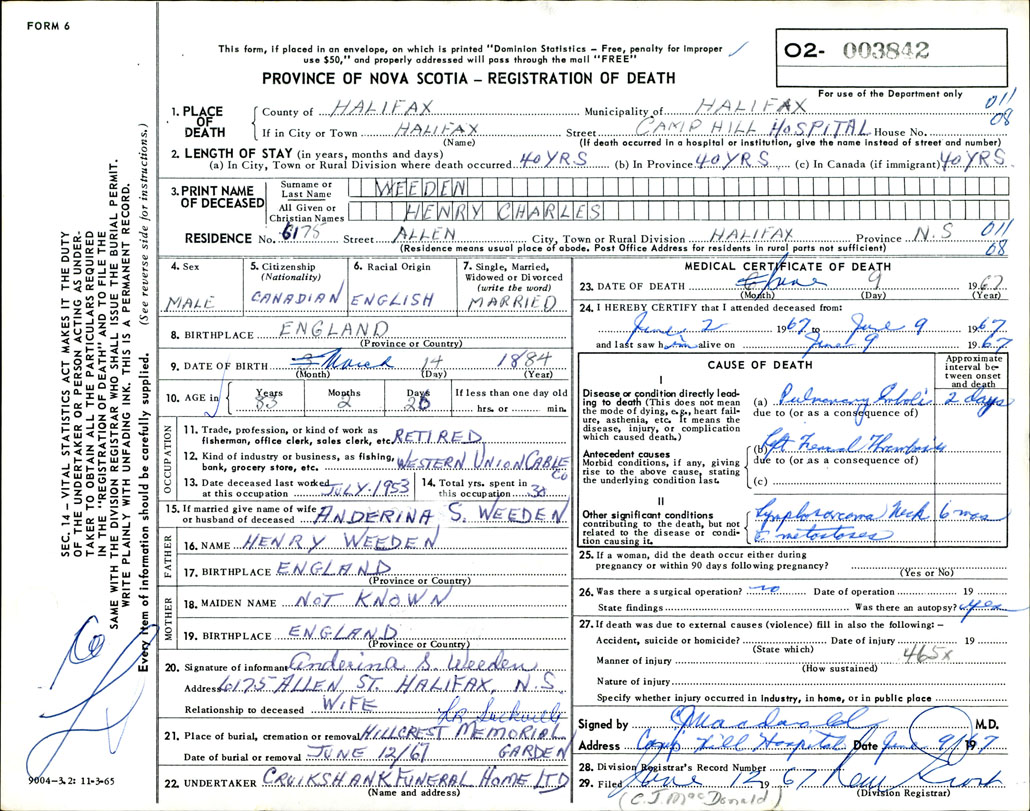 FORM 6
This form, if placed in an envelope, on which is printed "Dominion Statistics – Free, penalty for improper
use $50," and properly addressed will pass through the mail "FREE"
PROVINCE OF NOVA SCOTIA – REGISTRATION OF DEATH
O2- 003842
For use of the Department only
011
08
1. PLACE OF DEATH
County of HALIFAX Municipality of HALIFAX
If in City or Town HALIFAX Street CAMP HILL HOSPITAL House No.
(Name) (If death occurred in a hospital or institution, give the name instead of street and number)
2. LENGTH OF STAY (in years, months and days)
(a) In City, Town or Rural Division where death occurred 40 YRS (b) In Province 40 YRS (c) In Canada (if immigrant) 40 YRS
3. PRINT NAME OF DECEASED
Surname or Last Name WEEDEN
All Given or Christian Names HENRY CHARLES
RESIDENCE No. 6175 Street ALLEN City, Town or Rural Division HALIFAX Province N.S 011
(Residence means usual place of abode. Post Office Address for residents in rural parts not sufficient) 08
4. Sex MALE
5. Citizenship (Nationality) CANADIAN
6. Racial Origin ENGLISH
7. Single, Married, Widowed or Divorced (write the word) MARRIED
8. BIRTHPLACE ENGLAND
(Province or Country)
9. DATE OF BIRTH March 14 1884
(Month) (Day) (Year)
10. AGE in Years 83 Months 2 Days 26 If less than one day old
hrs. or min.
OCCUPATION
11. Trade, profession, or kind of work as
fisherman, office clerk, sales clerk, etc. RETIRED
12. Kind of industry or business, as fishing,
bank, grocery store, etc. WESTERN UNION CABLE Co
13. Date deceased last worked
at this occupation JULY-1953
14. Total yrs. spent in
this occupation 30
15. If married give name of wife
or husband of deceased ANDERINA S. WEEDEN
FATHER
16. NAME HENRY WEEDEN
17. BIRTHPLACE ENGLAND
(Province or Country)
MOTHER
18. MAIDEN NAME NOT KNOWN
19. BIRTHPLACE ENGLAND
(Province or Country)
20. Signature of informant Anderina S. Weeden
Address 6175 ALLEN ST. HALIFAX, N.S.
Relationship to deceased WIFE
21. Place of burial, cremation or removal HILLCREST MEMORIAL
GARDEN
Date of burial or removal JUNE 12/67
22. UNDERTAKER CRUIKSHANK FUNERAL HOME LTD
(Name and address)
MEDICAL CERTIFICATE OF DEATH
23. DATE OF DEATH June 9 1967
(Month) (Day) (Year)
24. I HEREBY CERTIFY that I attended deceased from:
June 2 1967 to June 9 1967
and last saw him alive on June 9 1967
CAUSE OF DEATH
Approximate interval between onset and death
I
Disease or condition directly leading
to death (This does not mean
the mode of dying, e.g., heart failure,
asthenia, etc. It means the
disease, injury, or complication
which caused death.)
(a) Pulmonary Emboli 2 days
due to (or as a consequence of)
Antecedent causes
Morbid conditions, if any, giving
rise to the above cause, stating
the underlying condition last.
(b) Left Femoral Thrombosis
due to (or as a consequence of)
(c)
II
Other significant conditions
contributing to the death, but not
related to the disease or condition
causing it.
Lymphosarcoma Neck 6 mos
c. metastases
25. If a woman, did the death occur either during
pregnancy or within 90 days following pregnancy?
(Yes or No)
26. Was there a surgical operation? no Date of operation 19
State findings Was there an autopsy? yes
27. If death was due to external causes (violence) fill in also the following: –
Accident, suicide or homicide? Date of injury 19
(State which) 465X
Manner of injury
(How sustained)
Nature of injury
Specify whether injury occurred in industry, in home, or in public place
Signed by M.D.
Address Camp Hill Hospital Date June 9/1967
28. Division Registrar's Record Number
29. Filed June 12 1967
(Division Registrar)
(C.J. MacDonald)
SEC. 14 – VITAL STATISTICS ACT MAKES IT THE DUTY
OF THE UNDERTAKER OR PERSON ACTING AS UNDERTAKER
TO OBTAIN ALL THE PARTICULARS REQUIRED
IN THE "REGISTRATION OF DEATH" AND TO FILE THE
SAME WITH THE DIVISION REGISTRAR WHO SHALL ISSUE THE BURIAL PERMIT.
WRITE PLAINLY WITH UNFADING INK. THIS IS A PERMANENT RECORD.
Every item of information should be carefully supplied. (See reverse side for instructions.)
9004-3.2: 11-3-65